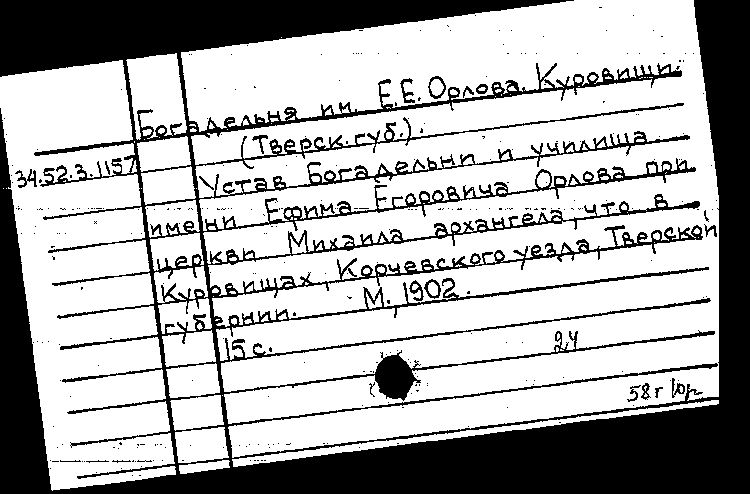 Богадельня им. Е.Е. Орлова. Куровищи.
(Тверск. губ.).
34.52.3.1157
Устав Богадельни и училища
имени Ефима Егоровича Орлова при
церкви Михаила архангела, что в
Куровищах, Корчевского уезда, Тверской
губернии. М., 1902.
15 с.
24
58 г